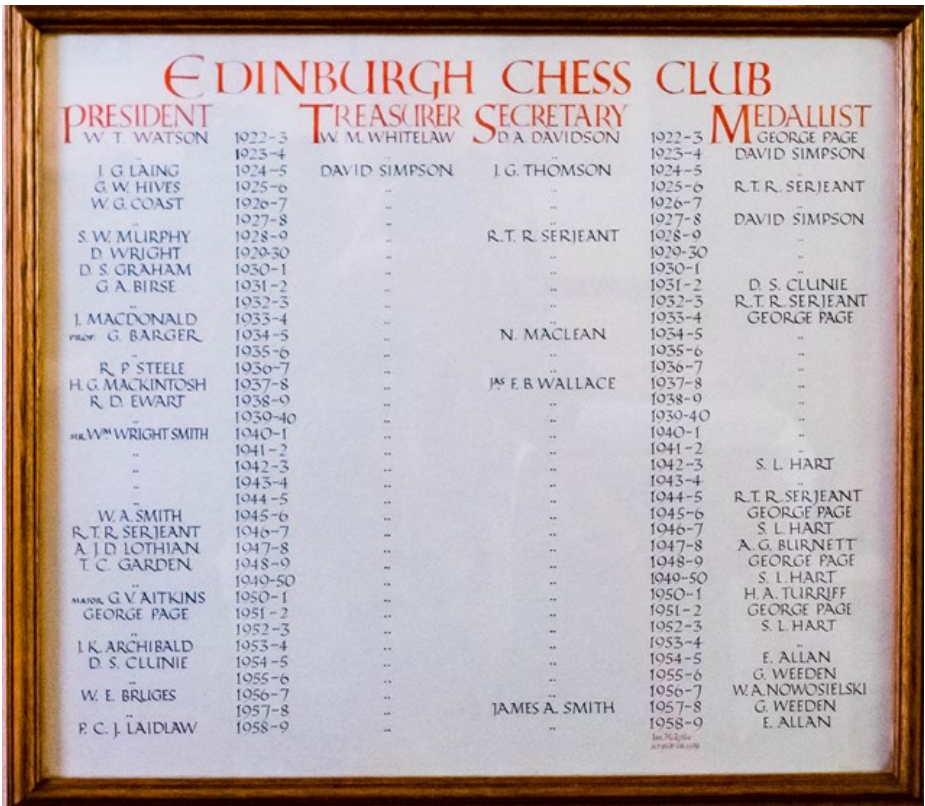 EDINBURGH CHESS CLUB
PRESIDENT TREASURER SECRETARY MEDALLIST
W. T. WATSON 1922-3 W. M. WHITELAW D. A. DAVIDSON 1922-3 GEORGE PAGE
.. 1923-4 .. .. 1923-4 DAVID SIMPSON
J. G. LAING 1924-5 DAVID SIMPSON J. G. THOMSON 1924-5 ..
G. W. HIVES 1925-6 .. .. 1925-6 R.T.R. SERJEANT
W. G. COAST 1926-7 .. .. 1926-7 ..
.. 1927-8 .. .. 1927-8 DAVID SIMPSON
S. W. MURPHY 1928-9 .. R.T.R. SERJEANT 1928-9 ..
D. WRIGHT 1929-30 .. .. 1929-30 ..
D. S. GRAHAM 1930-1 .. .. 1930-1 ..
G. A. BIRSE 1931-2 .. .. 1931-2 D. S. CLUNIE
.. 1932-3 .. .. 1932-3 R.T.R. SERJEANT
J. MACDONALD 1933-4 .. .. 1933-4 GEORGE PAGE
PROF. G. BARGER 1934-5 .. N. MACLEAN 1934-5 ..
.. 1935-6 .. .. 1935-6 ..
R. P. STEELE 1936-7 .. .. 1936-7 ..
H. G. MACKINTOSH 1937-8 .. JAS F. B. WALLACE 1937-8 ..
R. D. EWART 1938-9 .. .. 1938-9 ..
.. 1939-40 .. .. 1939-40 ..
MR. WM WRIGHT SMITH 1940-1 .. .. 1940-1 ..
.. 1941-2 .. .. 1941-2 ..
.. 1942-3 .. .. 1942-3 S. L. HART
.. 1943-4 .. .. 1943-4 ..
.. 1944-5 .. .. 1944-5 R.T.R. SERJEANT
W. A. SMITH 1945-6 .. .. 1945-6 GEORGE PAGE
R.T.R. SERJEANT 1946-7 .. .. 1946-7 S. L. HART
A. J. D. LOTHIAN 1947-8 .. .. 1947-8 A. G. BURNETT
T. C. GARDEN 1948-9 .. .. 1948-9 GEORGE PAGE
.. 1949-50 .. .. 1949-50 S. L. HART
MAJOR G. V. AITKINS 1950-1 .. .. 1950-1 H. A. TURRIFF
GEORGE PAGE 1951-2 .. .. 1951-2 GEORGE PAGE
.. 1952-3 .. .. 1952-3 S. L. HART
J. K. ARCHIBALD 1953-4 .. .. 1953-4 ..
D. S. CLUNIE 1954-5 .. .. 1954-5 E. ALLAN
.. 1955-6 .. .. 1955-6 G. WEEDEN
W. E. BRUGES 1956-7 .. .. 1956-7 W. A. NOWOSIELSKI
.. 1957-8 .. JAMES A. SMITH 1957-8 G. WEEDEN
P. C. J. LAIDLAW 1958-9 .. .. 1958-9 E. ALLAN